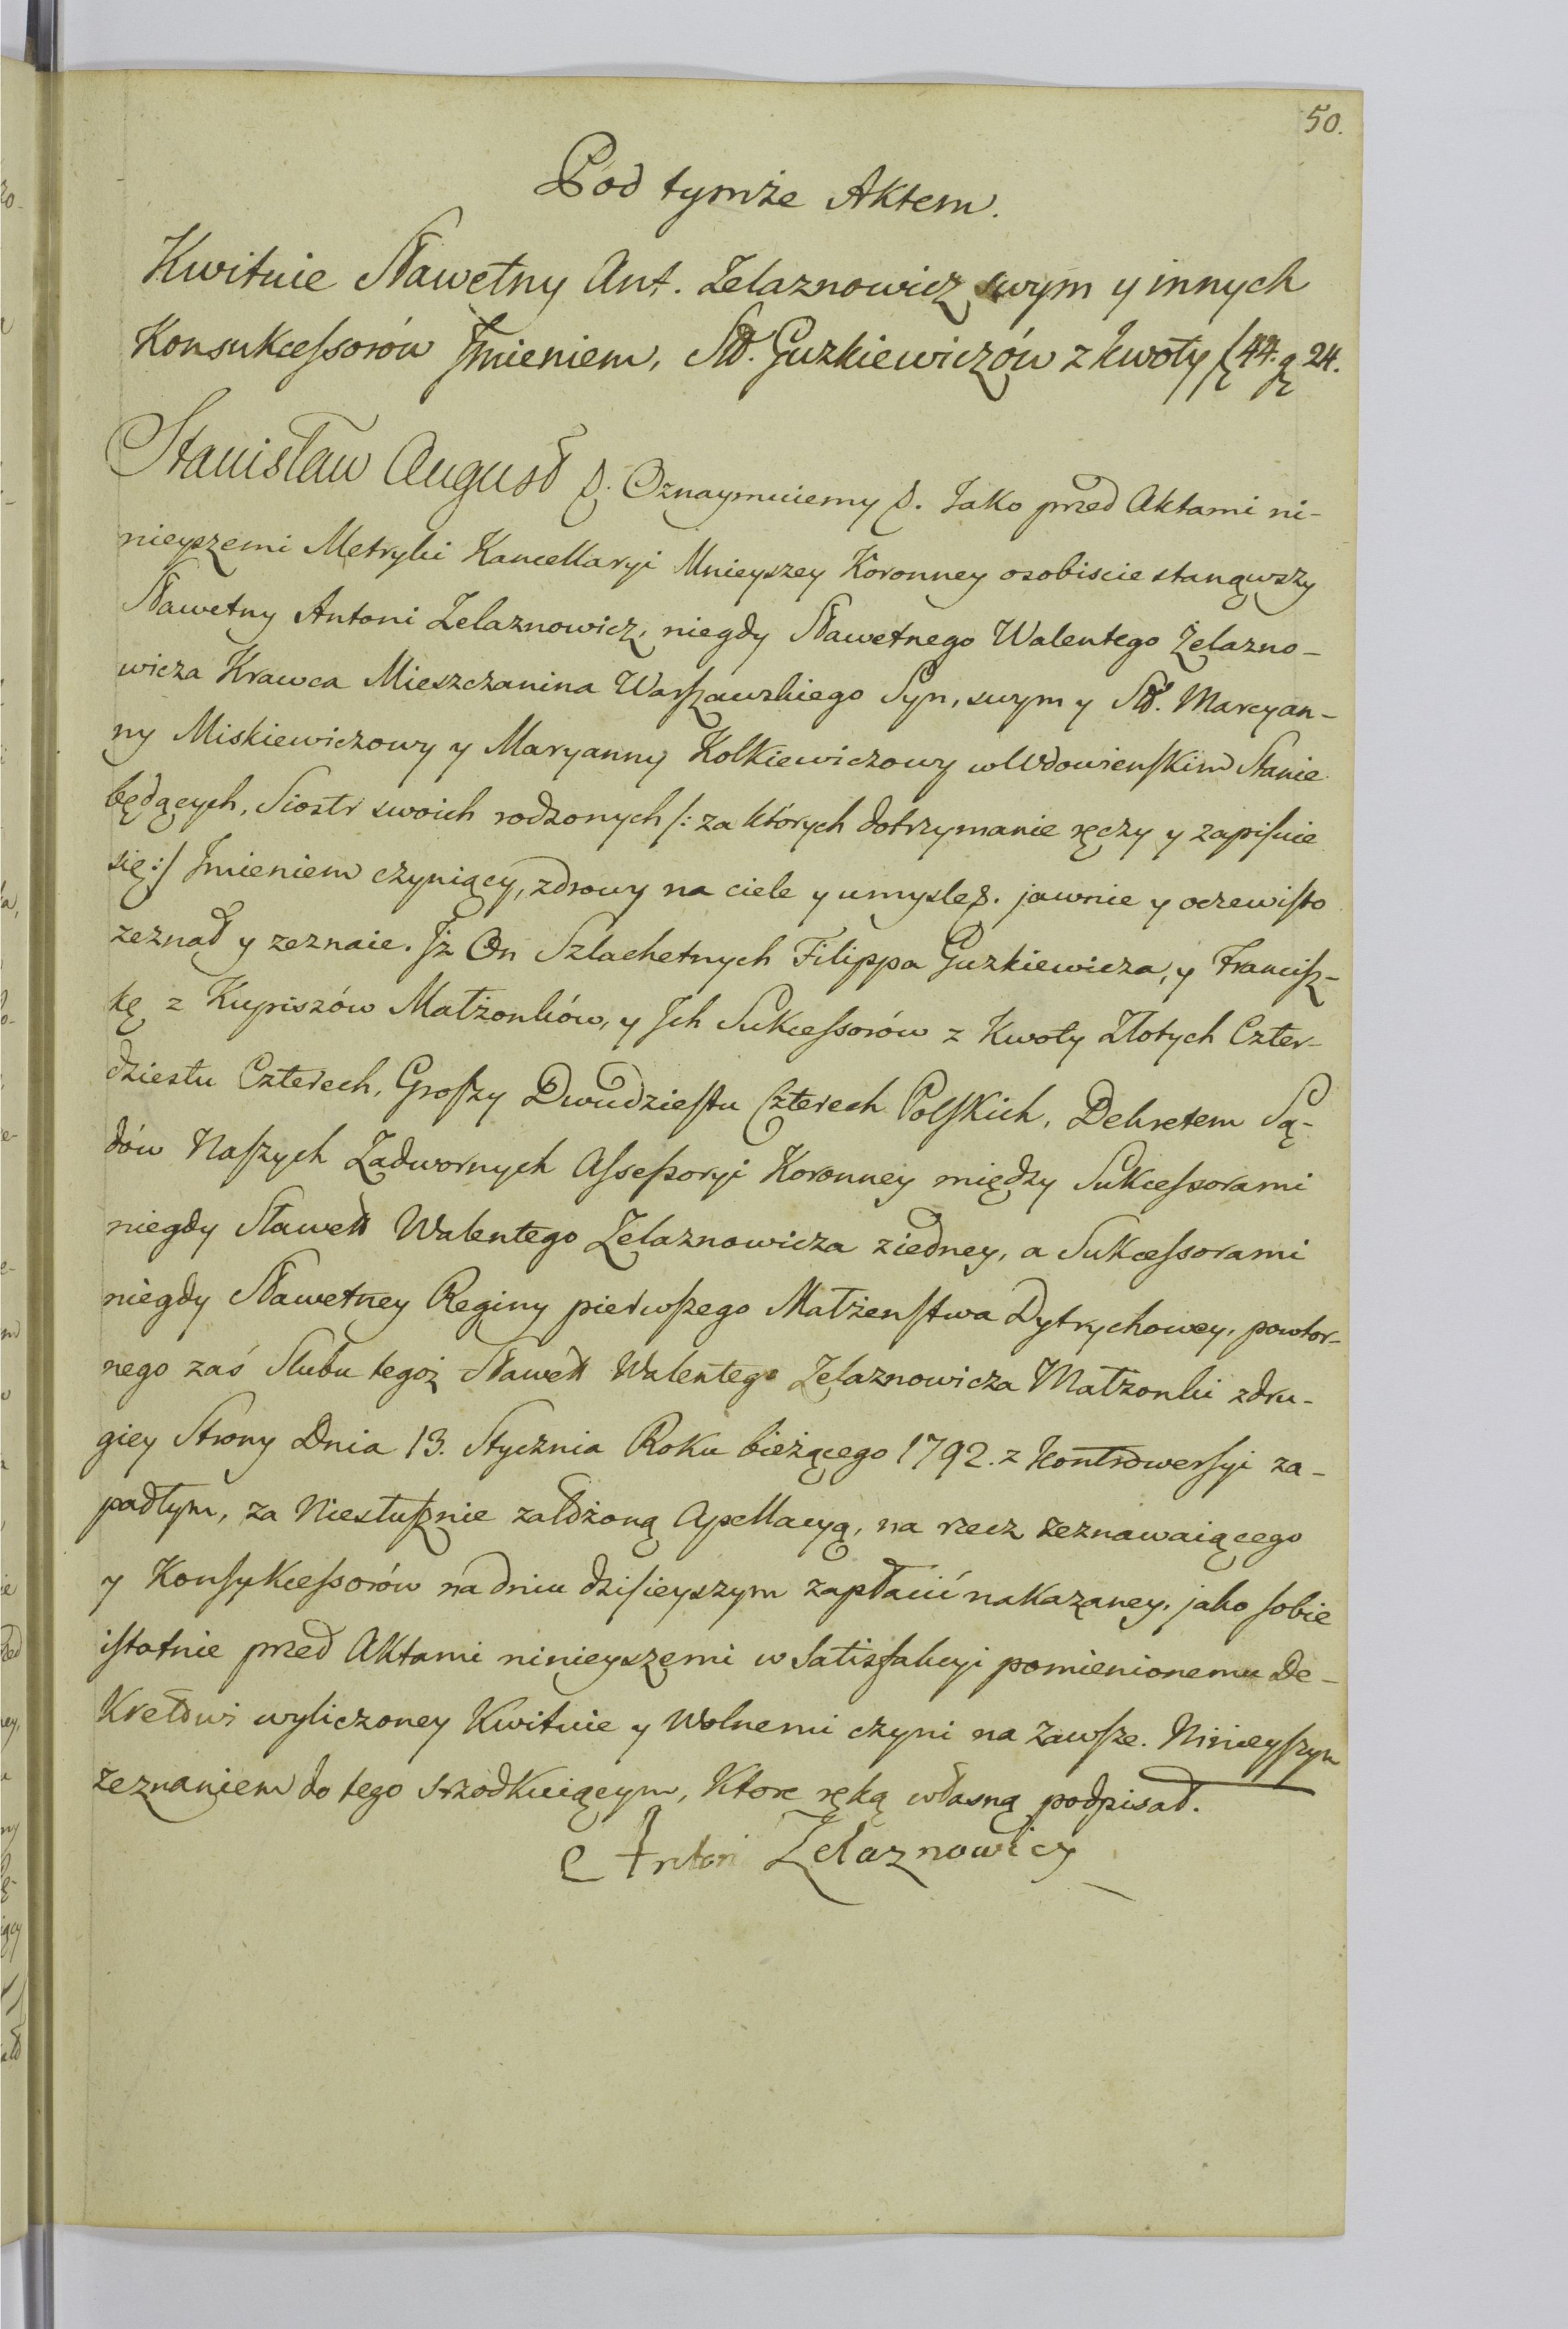 50.
Pod tymże Aktem.
Kwituie Sławetny Ant. Zelaznowicz swym y innych
Konsukcessorów Jmieniem, Sł. Guzkiewiczów z kwoty f 44. g 24.
Stanisław August &. Oznaymuiemy &. Jako przed Aktami ni-
nieyszemi Metryki Kancellaryi Mnieyszey Koronney osobiscie stanąwszy
Sławetny Antoni Zelaznowicz, niegdy Sławetnego Walentego Żelazno-
wicza Krawca Mieszczanina Warszawskiego Syn, swym y Sł. Marcyan-
ny Miskiewiczowy y Maryanny Kolkiewiczowy w Wdowienskim Stanie
będących, Siostr swoich rodzonych /: za których dotrzymanie ręczy y zapisuie
się :/ Jmieniem czyniący, zdrowy na ciele y umysle &. jawnie y oczewisto
zeznał y zeznaie. Jż On Szlachetnych Filippa Guzkiewicza, y Francisz-
kę z Kupiszów Małżonków, y Jch Sukcessorów z Kwoty Złotych Czter-
dziestu Czterech, Groszy Dwudziestu Czterech Polskich, Dekretem Są-
dów Naszych Zadwornych Assessoryi Koronney między Sukcessorami
niegdy Sławett Walentego Zelaznowicza z iedney, a Sukcessorami
niegdy Sławetney Reginy pierwszego Małżenstwa Dytrychowey, powtor-
nego zaś Slubu tegoż Sławett Walentego Zelaznowicza Małzonki z dru-
giey Strony Dnia 13. Stycznia Roku bieżącego 1792. z Kontrowersyi za-
padłym, za Niesłusznie założoną Apellacyą, na rzecz zeznawaiącego
y Konsykcessorów na dniu dzisieyszym zapłacić nakazaney, jako sobie
istotnie przed Aktami ninieyszemi w Satisfakcyi pomienionemu De-
kretowi wyliczoney Kwituie y Wolnemi czyni na zawsze. Ninieyszym
zeznaniem do tego srzodkuiącym, Ktore ręką własną podpisał.
Antoni Zelaznowicz